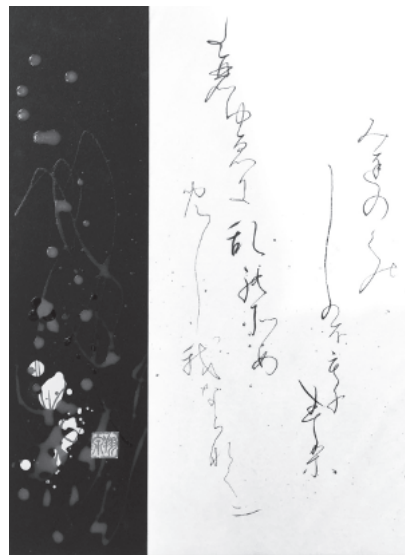 みちのくの
しのふもちすり
たれゆゑに乱れそめ
にし我ならなくに